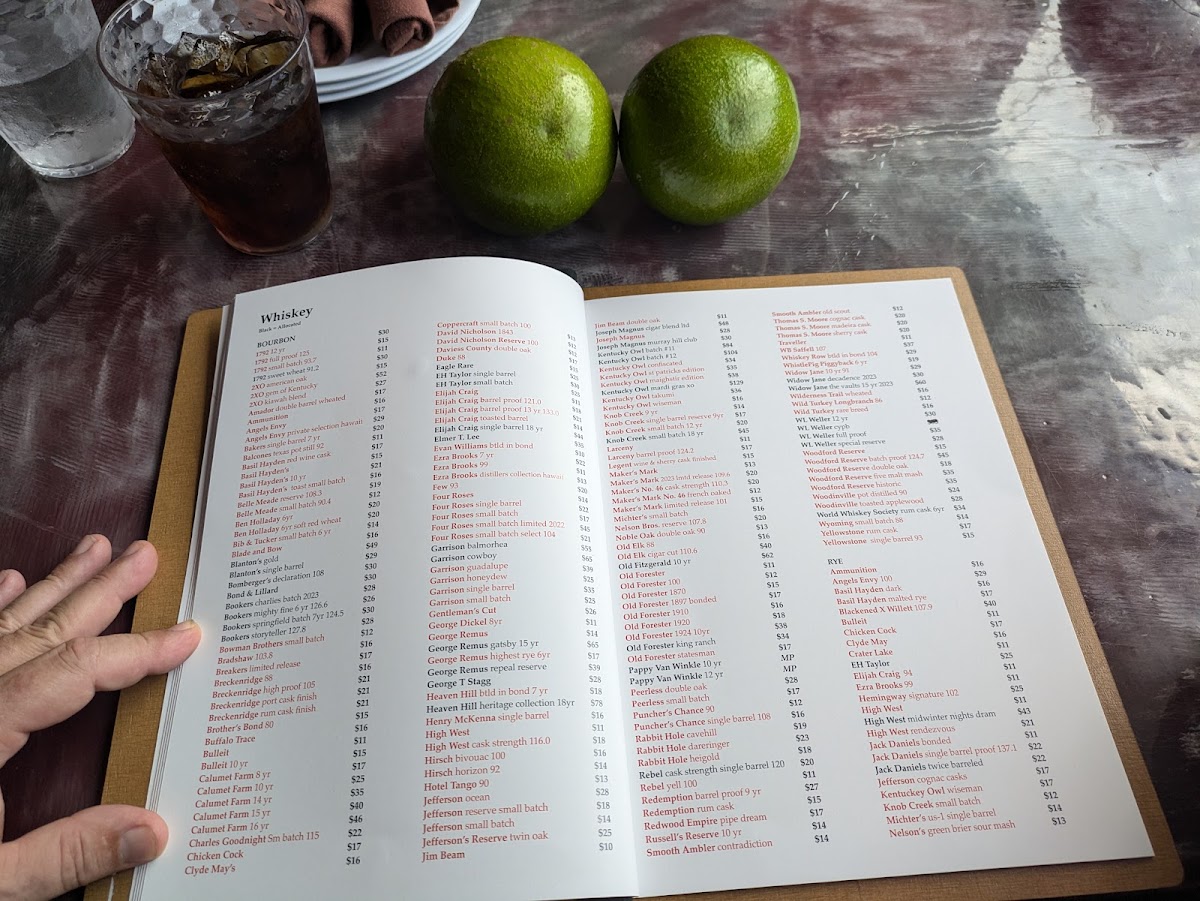 Whiskey
Black = Allocated
BOURBON
1792 12 yr
1792 full proof 125
1792 small batch 93.7
1792 sweet wheat 91.2
2XO american oak
2XO gem of Kentucky
2XO kiawah blend
Amador double barrel wheated
Ammunition
Angels Envy
Angels Envy private selection hawaii
Bakers single barrel 7 yr
Balcones texas pot still 92
Basil Hayden red wine cask
Basil Hayden's
Basil Hayden's 10 yr
Basil Hayden's toast small batch
Belle Meade reserve 108.3
Belle Meade small batch 90.4
Ben Holladay 6yr
Ben Holladay 6yr soft red wheat
Bib & Tucker small batch 6 yr
Blade and Bow
Blanton's gold
Blanton's single barrel
Bomberger's declaration 108
Bond & Lillard
Bookers charlies batch 2023
Bookers mighty fine 6 yr 126.6
Bookers springfield batch 7yr 124.5
Bookers storyteller 127.8
Bowman Brothers small batch
Bradshaw 103.8
Breakers limited release
Breckenridge 88
Breckenridge high proof 105
Breckenridge port cask finish
Breckenridge rum cask finish
Brother's Bond 80
Buffalo Trace
Bulleit
Bulleit 10 yr
Calumet Farm 8 yr
Calumet Farm 10 yr
Calumet Farm 14 yr
Calumet Farm 15 yr
Calumet Farm 16 yr
Charles Goodnight Sm batch 115
Chicken Cock
Clyde May's
$30
$15
$11
$30
$15
$52
$27
$17
$16
$17
$29
$20
$11
$17
$15
$21
$16
$19
$12
$20
$20
$14
$16
$49
$29
$30
$30
$28
$26
$30
$28
$12
$17
$16
$21
$21
$21
$15
$16
$11
$15
$17
$25
$35
$40
$46
$22
$17
$16
Coppercraft small batch 100
David Nicholson 1843
David Nicholson Reserve 100
Daviess County double oak
Duke 88
Eagle Rare
EH Taylor single barrel
EH Taylor small batch
Elijah Craig
Elijah Craig barrel proof 121.0
Elijah Craig barrel proof 13 yr 133.0
Elijah Craig toasted barrel
Elijah Craig single barrel 18 yr
Elmer T. Lee
Evan Williams btld in bond
Ezra Brooks 7 yr
Ezra Brooks 99
Ezra Brooks distillers collection hawaii
Few 93
Four Roses
Four Roses single barrel
Four Roses small batch
Four Roses small batch limited 2022
Four Roses small batch select 104
Garrison balmorhea
Garrison cowboy
Garrison guadalupe
Garrison honeydew
Garrison single barrel
Garrison small batch
Gentleman's Cut
George Dickel 8yr
George Remus
George Remus gatsby 15 yr
George Remus highest rye 6yr
George Remus repeal reserve
George T Stagg
Heaven Hill btld in bond 7 yr
Heaven Hill heritage collection 18yr
Henry McKenna single barrel
High West
High West cask strength 116.0
Hirsch bivouac 100
Hirsch horizon 92
Hotel Tango 90
Jefferson ocean
Jefferson reserve small batch
Jefferson small batch
Jefferson's Reserve twin oak
Jim Beam
$26
$11
$14
$65
$17
$39
$28
$18
$78
$16
$11
$18
$16
$14
$13
$28
$18
$14
$25
$10
Jim Beam double oak
Joseph Magnus cigar blend ltd
Joseph Magnus
Joseph Magnus murray hill club
Kentucky Owl batch #11
Kentucky Owl batch #12
Kentucky Owl confiscated
Kentucky Owl st patricks edition
Kentucky Owl maighstir edition
Kentucky Owl mardi gras xo
Kentucky Owl takumi
Kentucky Owl wiseman
Knob Creek 9 yr
Knob Creek single barrel reserve 9yr
Knob Creek small batch 12 yr
Knob Creek small batch 18 yr
Larceny
Larceny barrel proof 124.2
Legent wine & sherry cask finished
Maker's Mark
Maker's Mark 2023 lmtd release 109.6
Maker's No. 46 cask strength 110.3
Maker's Mark No. 46 french oaked
Maker's Mark limited release 101
Michter's small batch
Nelson Bros. reserve 107.8
Noble Oak double oak 90
Old Elk 88
Old Elk cigar cut 110.6
Old Fitzgerald 10 yr
Old Forester
Old Forester 100
Old Forester 1870
Old Forester 1897 bonded
Old Forester 1910
Old Forester 1920
Old Forester 1924 10yr
Old Forester king ranch
Old Forester statesman
Pappy Van Winkle 10 yr
Pappy Van Winkle 12 yr
Peerless double oak
Peerless small batch
Puncher's Chance 90
Puncher's Chance single barrel 108
Rabbit Hole cavehill
Rabbit Hole dareringer
Rabbit Hole heigold
Rebel cask strength single barrel 120
Rebel yell 100
Redemption barrel proof 9 yr
Redemption rum cask
Redwood Empire pipe dream
Russell's Reserve 10 yr
Smooth Ambler contradiction
$11
$48
$28
$30
$84
$104
$28
$35
$38
$129
$36
$16
$14
$17
$20
$45
$11
$17
$15
$13
$20
$20
$12
$15
$16
$20
$13
$16
$40
$62
$11
$12
$15
$17
$16
$18
$38
$34
$17
MP
MP
$28
$17
$12
$16
$19
$23
$18
$20
$11
$27
$15
$17
$14
$14
Smooth Ambler old scout
Thomas S. Moore cognac cask
Thomas S. Moore madeira cask
Thomas S. Moore sherry cask
Traveller
WB Saffell 107
Whiskey Row btld in bond 104
WhistlePig Piggyback 6 yr
Widow Jane 10 yr 91
Widow Jane decadence 2023
Widow Jane the vaults 15 yr 2023
Wilderness Trail wheated
Wild Turkey Longbranch 86
Wild Turkey rare breed
WL Weller 12 yr
WL Weller cypb
WL Weller full proof
WL Weller special reserve
Woodford Reserve
Woodford Reserve batch proof 124.7
Woodford Reserve double oak
Woodford Reserve five malt mash
Woodford Reserve historic
Woodinville pot distilled 90
Woodinville toasted applewood
World Whiskey Society rum cask 6yr
Wyoming small batch 88
Yellowstone rum cask
Yellowstone single barrel 93
$12
$20
$20
$20
$11
$37
$19
$29
$30
$60
$16
$12
$16
$30
$35
$28
$15
$45
$18
$35
$35
$24
$28
$34
$14
$17
$15
RYE
Ammunition
Angels Envy 100
Basil Hayden dark
Basil Hayden malted rye
Blackened X Willett 107.9
Bulleit
Chicken Cock
Clyde May
Crater Lake
EH Taylor
Elijah Craig 94
Ezra Brooks 99
Hemingway signature 102
High West
High West midwinter nights dram
High West rendezvous
Jack Daniels bonded
Jack Daniels single barrel proof 137.1
Jack Daniels twice barreled
Jefferson cognac casks
Kentuckey Owl wiseman
Knob Creek small batch
Michter's us-1 single barrel
Nelson's green brier sour mash
$16
$29
$16
$17
$40
$11
$17
$16
$11
$25
$11
$11
$25
$11
$43
$21
$11
$22
$22
$17
$17
$12
$14
$13